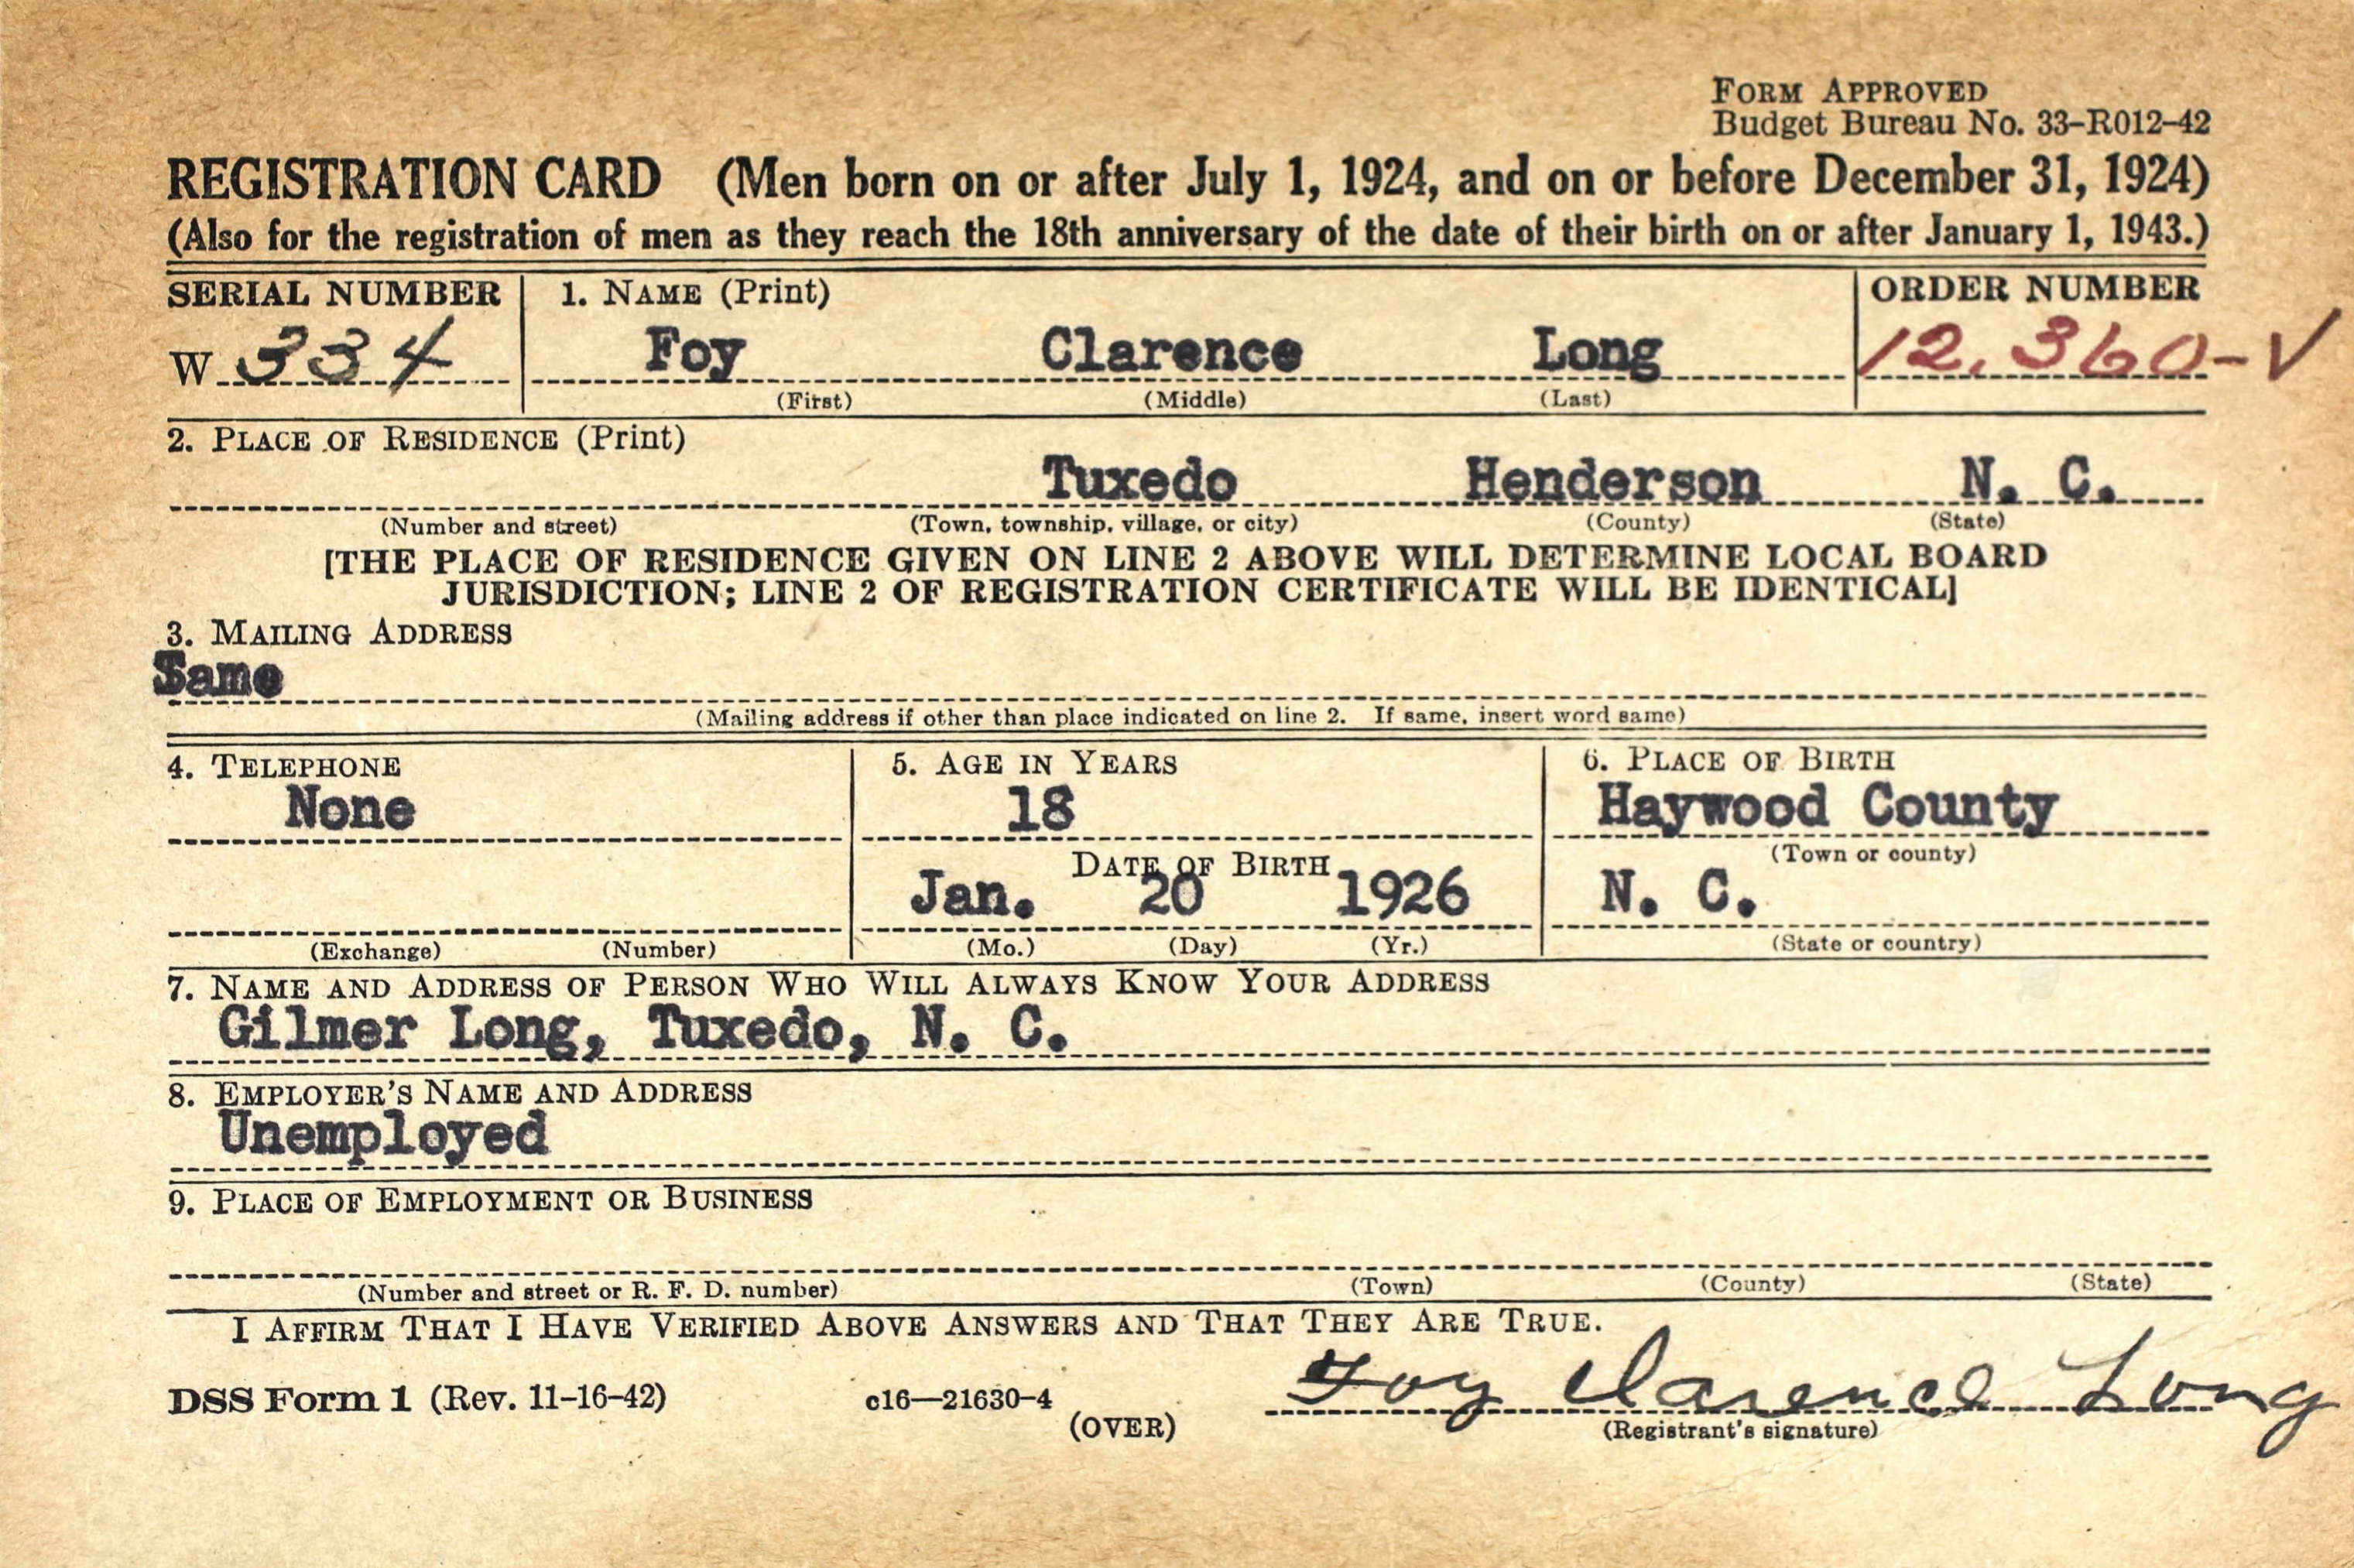 FORM APPROVED
Budget Bureau No. 33-R012-42
REGISTRATION CARD (Men born on or after July 1, 1924, and on or before December 31, 1924)
(Also for the registration of men as they reach the 18th anniversary of the date of their birth on or after January 1, 1943.)
SERIAL NUMBER 1. NAME (Print) ORDER NUMBER
W 334 Foy Clarence Long 12,360-V
(First) (Middle) (Last)
2. PLACE OF RESIDENCE (Print)
Tuxedo Henderson N. C.
(Number and street) (Town, township, village, or city) (County) (State)
[THE PLACE OF RESIDENCE GIVEN ON LINE 2 ABOVE WILL DETERMINE LOCAL BOARD
JURISDICTION; LINE 2 OF REGISTRATION CERTIFICATE WILL BE IDENTICAL]
3. MAILING ADDRESS
Same
(Mailing address if other than place indicated on line 2. If same, insert word same)
4. TELEPHONE 5. AGE IN YEARS 6. PLACE OF BIRTH
None 18 Haywood County
DATE OF BIRTH (Town or county)
Jan. 20 1926 N. C.
(Exchange) (Number) (Mo.) (Day) (Yr.) (State or country)
7. NAME AND ADDRESS OF PERSON WHO WILL ALWAYS KNOW YOUR ADDRESS
Gilmer Long, Tuxedo, N. C.
8. EMPLOYER'S NAME AND ADDRESS
Unemployed
9. PLACE OF EMPLOYMENT OR BUSINESS
(Number and street or R. F. D. number) (Town) (County) (State)
I AFFIRM THAT I HAVE VERIFIED ABOVE ANSWERS AND THAT THEY ARE TRUE.
Foy Clarence Long
DSS Form 1 (Rev. 11-16-42) c16—21630-4 (OVER) (Registrant's signature)